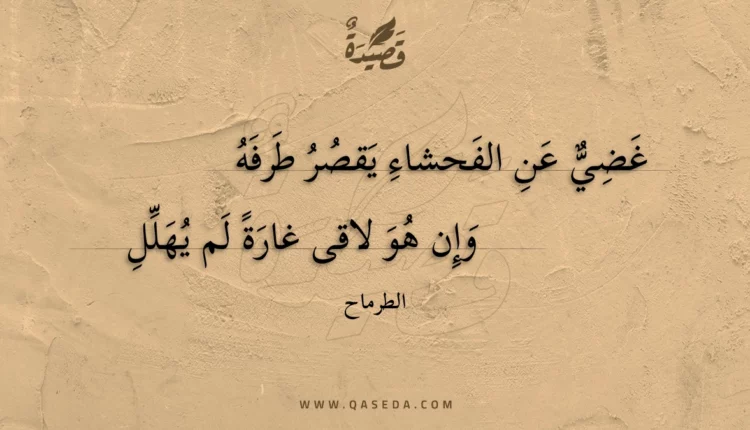 قَصِيدَةٌ
غَضِيٌّ عَنِ الفَحشاءِ يَقصُرُ طَرفَهُ
وَإِن هُوَ لاقى غارَةً لَم يُهَلِّلِ
الطرماح
WWW.QASEDA.COM